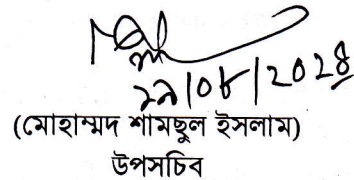 ২৯/০৮/2024
(মোহাম্মদ শামছুল ইসলাম)
উপসচিব